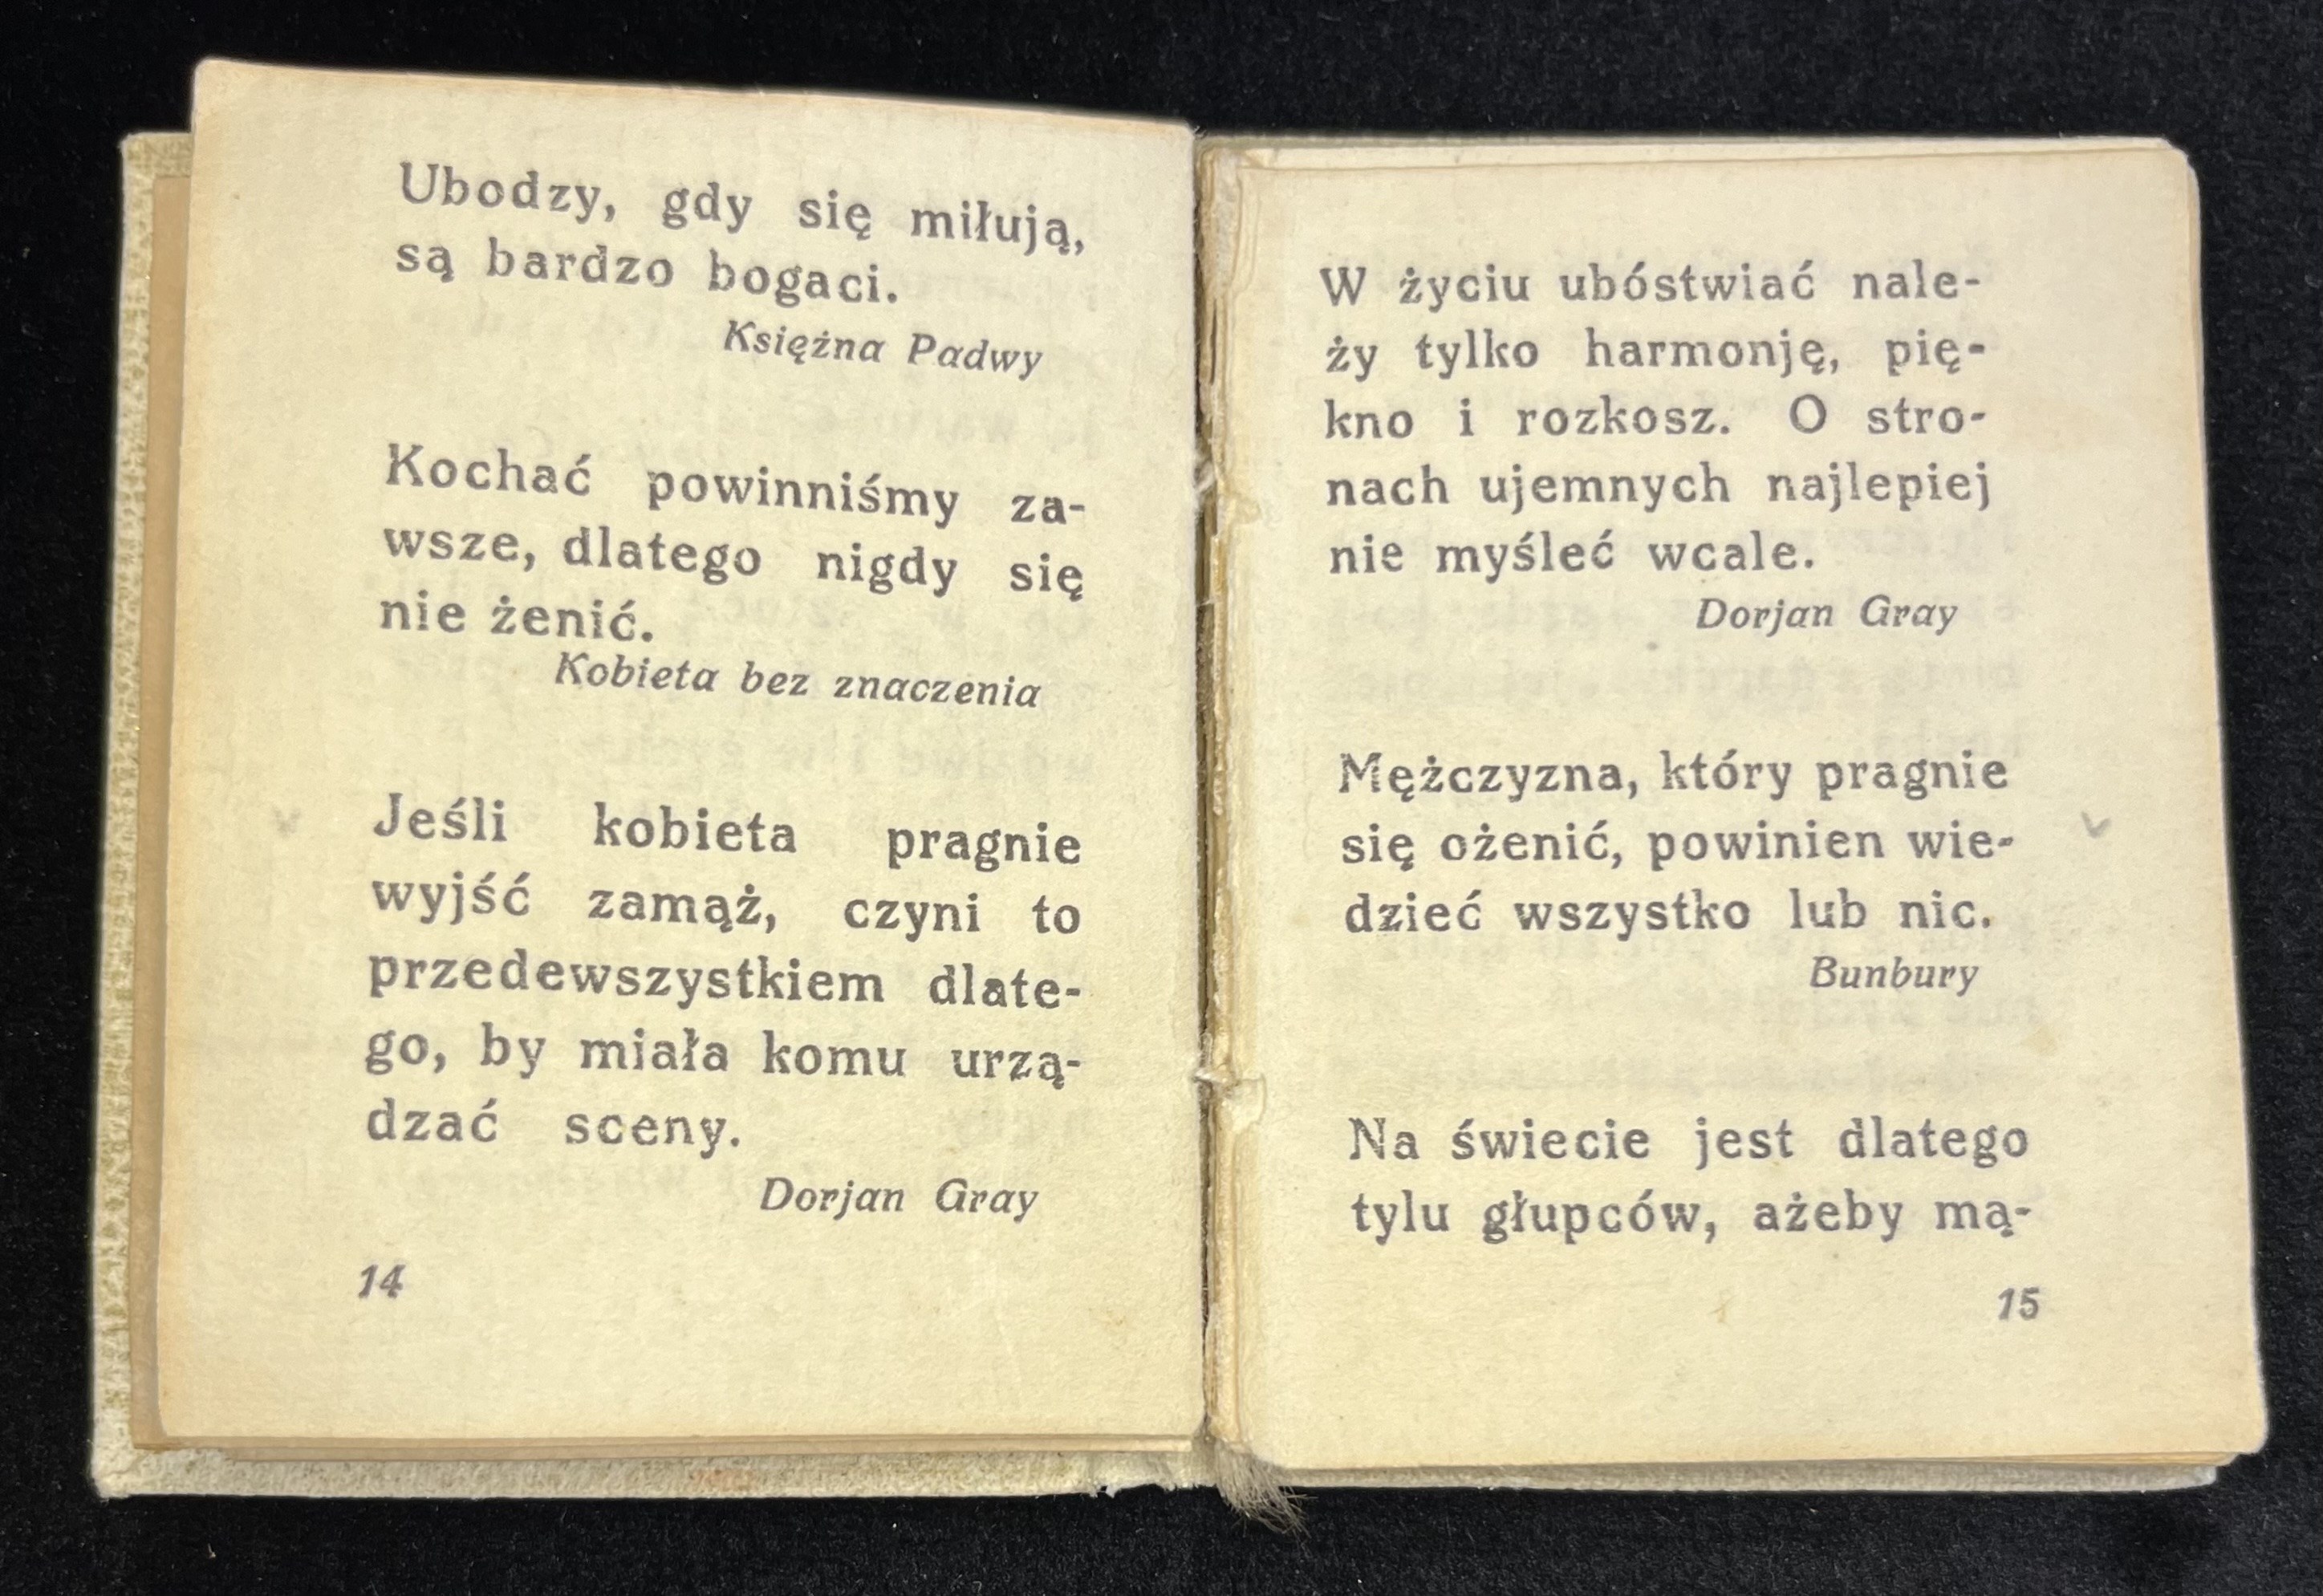 Ubodzy, gdy się miłują,
są bardzo bogaci.
Księżna Padwy
Kochać powinniśmy za-
wsze, dlatego nigdy się
nie żenić.
Kobieta bez znaczenia
Jeśli kobieta pragnie
wyjść zamąż, czyni to
przedewszystkiem dlate-
go, by miała komu urzą-
dzać sceny.
Dorjan Gray
14
W życiu ubóstwiać nale-
ży tylko harmonję, pię-
kno i rozkosz. O stro-
nach ujemnych najlepiej
nie myśleć wcale.
Dorjan Gray
Mężczyzna, który pragnie
się ożenić, powinien wie-
dzieć wszystko lub nic.
Bunbury
Na świecie jest dlatego
tylu głupców, ażeby mą-
15